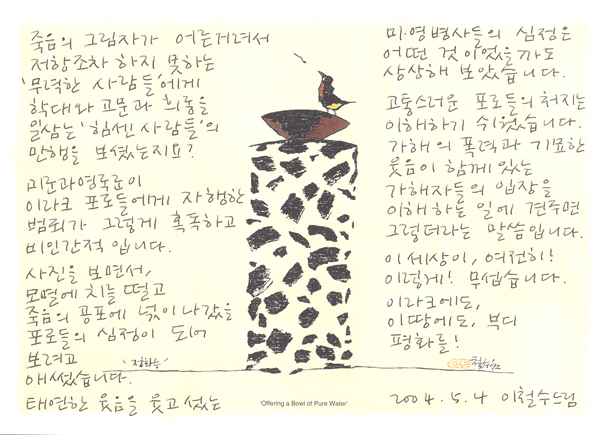 죽음의 그림자가 어른거려서
저항조차 하지 못하는
'무력한 사람들'에게
학대와 고문과 희롱을
일삼는 '힘센 사람들'의
만행을 보셨는지요?
미군과 영국군이
이라크 포로들에게 자행한
범죄가 그렇게 혹독하고
비인간적입니다.
사진을 보면서,
모멸에 치를 떨고
죽음의 공포에 넋이 나갔을
포로들의 심정이 되어
보려고
애썼습니다.
태연한 웃음을 웃고 섰는
'정화수'
'Offering a Bowl of Pure Water'
미·영병사들의 심정은
어떤 것이었을까도
상상해 보았습니다.
고통스러운 포로들의 처지는
이해하기 쉬웠습니다.
가해의 폭력과 기묘한
웃음이 함께 있는
가해자들의 입장을
이해하는 일에 견주면
그렇더라는 말씀입니다.
이 세상이, 여전히!
이렇게! 무섭습니다.
이라크에도,
이 땅에도, 부디
평화를!
철수
2004.5.4 이철수드림